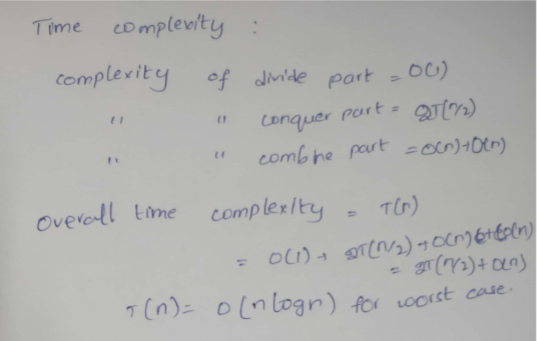 Time complexity :
complexity of divide part = O(1)
" " conquer part = 2T(n/2)
" " combine part = O(n)+O(n)
Overall time complexity = T(n)
= O(1) + 2T(n/2) + O(n) + O(n)
= 2T(n/2) + O(n)
T(n) = O(n logn) for worst case.